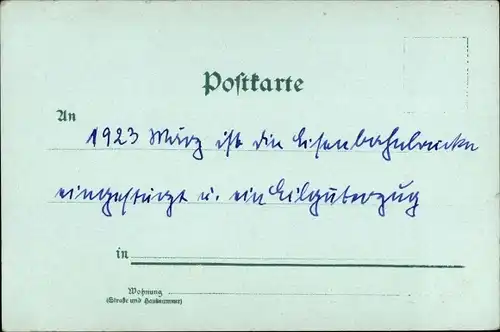 Postkarte
An
1923 März ist die Eisenbahnbrücke
eingestürzt u. ein Eilgüterzug
in
Wohnung
(Straße und Hausnummer)